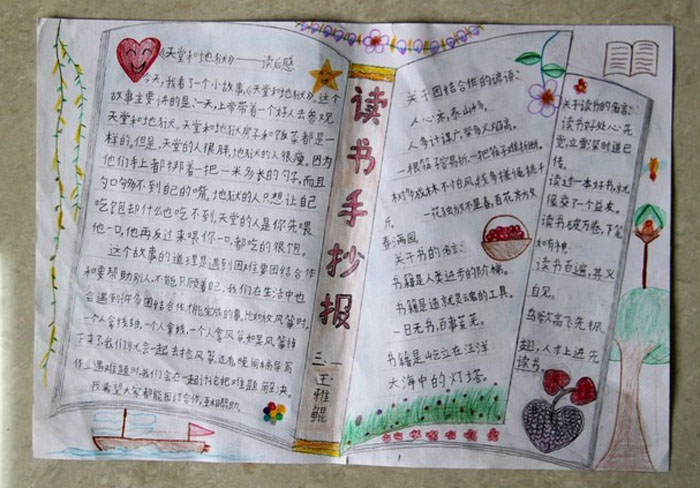 《天堂和地狱》——读后感
今天,我看了一个小故事《天堂和地狱》,这个
故事主要讲的是:一天,上帝带着一个好人去参观
天堂和地狱。天堂和地狱房子和饭菜都是一
样的,但是,天堂的人很胖,地狱的人很瘦。因为
他们手上都绑着一把一米多长的勺子,而且
勺口够不到自己的嘴,地狱的人只想让自己
吃饱却什么也吃不到,天堂的人是你先喂
他一口,他再反过来喂你一口,都吃的很饱。
这个故事的道理是遇到困难要团结合作
和要帮助别人,不能只顾着自己,我们在生活中也
会遇到许多团结合作才能完成的事,比如放风筝时,
一个人拿线轴,一个人拿线,一个人拿风筝如果风筝掉
下来了我们就会一起去捡风筝,还有,晚间辅导写
作业遇难题时,我们会在一起讨论把难题解决。
我希望大家都能团结合作,互相帮助。
读书手抄报
三、一
王雅鲲
关于团结合作的谚语:
人心齐,泰山移。
人多计谋广,柴多火焰高。
一根筷子容易折,一把筷子难折断。
树多成林不怕风,线多搓绳挑千
斤。
一花独放不是春,百花齐放
春满园
关于书的名言:
书籍是人类进步的阶梯。
书籍是造就灵魂的工具。
一日无书,百事荒芜。
书籍是屹立在汪洋
大海中的灯塔。
关于读书的名言:
读书好处心先
觉,立雪深时道已
传。
读过一本好书,就
像交了个益友。
读书破万卷,下笔
如有神。
读书百遍,其义
自见。
鸟欲高飞先振
翅,人求上进先
读书。